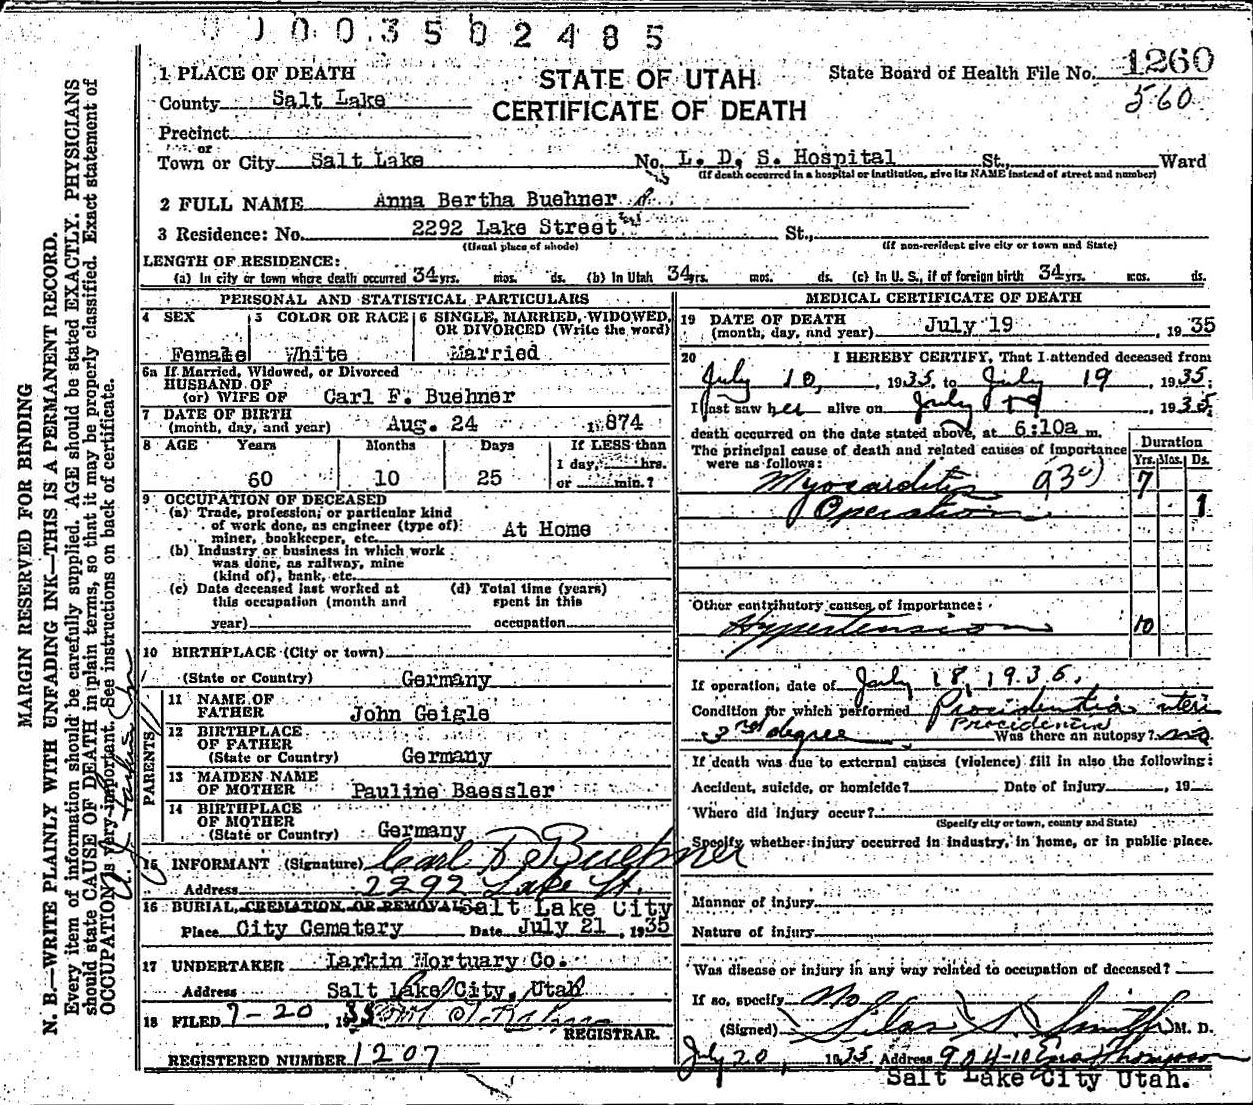 0003502485
1 PLACE OF DEATH
STATE OF UTAH
CERTIFICATE OF DEATH
State Board of Health File No. 1260
560
County Salt Lake
Precinct
or
Town or City Salt Lake No. L. D. S. Hospital St., Ward
(If death occurred in a hospital or institution, give its NAME instead of street and number)
2 FULL NAME Anna Bertha Buehner
3 Residence: No. 2292 Lake Street St.,
(Usual place of abode) (If non-resident give city or town and State)
LENGTH OF RESIDENCE:
(a) In city or town where death occurred 34 yrs. mos. ds. (b) In Utah 34 yrs. mos. ds. (c) In U. S., if of foreign birth 34 yrs. mos. ds.
PERSONAL AND STATISTICAL PARTICULARS
4 SEX 5 COLOR OR RACE 6 SINGLE, MARRIED, WIDOWED, OR DIVORCED (Write the word)
Female White Married
6a If Married, Widowed, or Divorced
HUSBAND OF
(or) WIFE OF Carl F. Buehner
7 DATE OF BIRTH
(month, day, and year) Aug. 24 1874
8 AGE Years Months Days If LESS than
1 day, hrs.
60 10 25 or min.?
9 OCCUPATION OF DECEASED
(a) Trade, profession, or particular kind
of work done, as engineer (type of)
miner, bookkeeper, etc. At Home
(b) Industry or business in which work
was done, as railway, mine
(kind of), bank, etc.
(c) Date deceased last worked at (d) Total time (years)
this occupation (month and spent in this
year) occupation
10 BIRTHPLACE (City or town)
(State or Country) Germany
PARENTS
11 NAME OF
FATHER John Geigle
12 BIRTHPLACE
OF FATHER
(State or Country) Germany
13 MAIDEN NAME
OF MOTHER Pauline Baessler
14 BIRTHPLACE
OF MOTHER
(State or Country) Germany
15 INFORMANT (Signature) Carl F Buehner
Address 2292 Lake St.
16 BURIAL, CREMATION OR REMOVAL Salt Lake City
Place City Cemetery Date July 21, 1935
17 UNDERTAKER Larkin Mortuary Co.
Address Salt Lake City, Utah
18 FILED 7-20, 1935
REGISTRAR.
REGISTERED NUMBER 1207
MEDICAL CERTIFICATE OF DEATH
19 DATE OF DEATH
(month, day, and year) July 19, 1935
20 I HEREBY CERTIFY, That I attended deceased from
July 10, 1935, to July 19, 1935;
I last saw her alive on July 19, 1935,
death occurred on the date stated above, at 6:10a m.
The principal cause of death and related causes of importance
were as follows:
Duration
Yrs. Mos. Ds.
Myocarditis 93c) 7
Operation 1
Other contributory causes of importance:
Hypertension 10
If operation, date of July 18, 1935.
Condition for which performed Procidentia uteri
Procidentia
3rd degree Was there an autopsy? no
If death was due to external causes (violence) fill in also the following:
Accident, suicide, or homicide? Date of injury, 19
Where did injury occur?
(Specify city or town, county and State)
Specify whether injury occurred in industry, in home, or in public place.
Manner of injury
Nature of injury
Was disease or injury in any way related to occupation of deceased?
If so, specify No
(Signed) Silas S. Smith M. D.
July 20, 1935 Address 904-10 Ezra Thompson
Salt Lake City Utah.
MARGIN RESERVED FOR BINDING
N. B.—WRITE PLAINLY WITH UNFADING INK—THIS IS A PERMANENT RECORD.
Every item of information should be carefully supplied. AGE should be stated EXACTLY. PHYSICIANS
should state CAUSE OF DEATH in plain terms, so that it may be properly classified. Exact statement of
OCCUPATION is very important. See instructions on back of certificate.